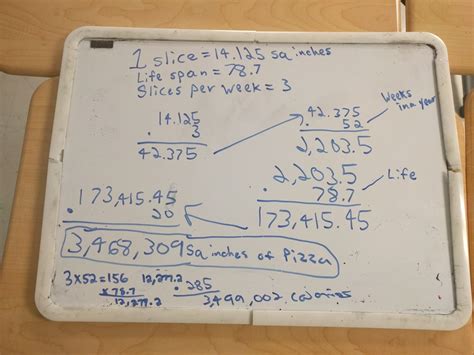 1 slice = 14.125 sq inches
Life span = 78.7
Slices per week = 3
14.125
. 3
42.375
42.375
. 52
2,203.5
Weeks in a year
2,203.5
. 78.7
173,415.45
Life
173,415.45
. 20
3,468,309 sq inches of Pizza
3x52=156
x78.7
12,277.2
12,277.2
. 285
3,499,002 calories